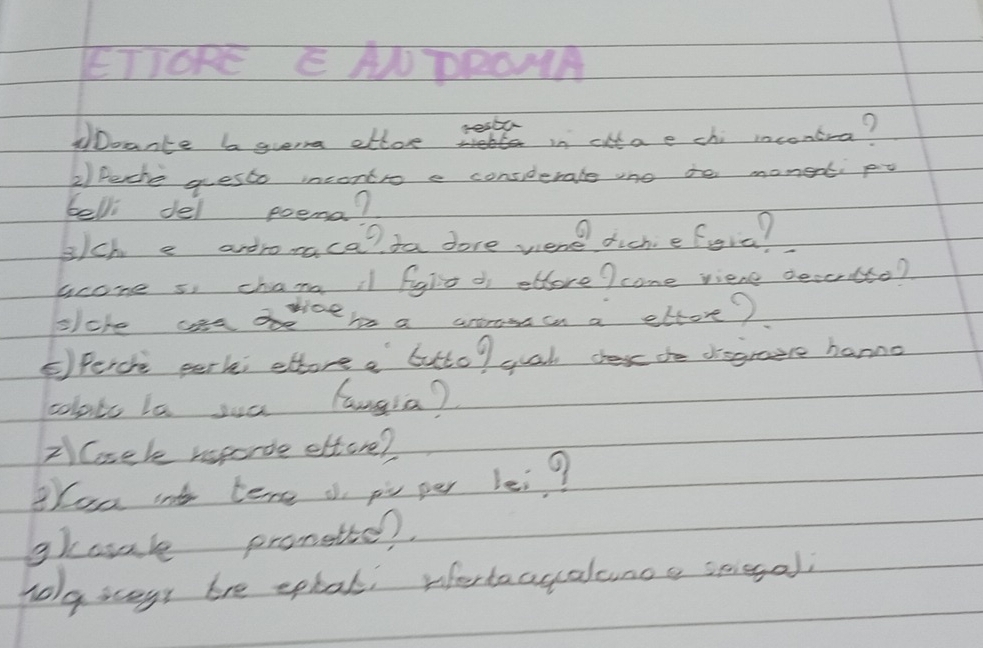 ETTORE E ANDROMA
1) Doante la guerra ettore resta in citta e chi incontra?
2) Perchè questo incontro e considerato uno de momenti piu
belli del poema?
3) Chi e andromaca? da dove viene? di chi e figlia?
4 come si chiama il figlio di ettore? come viene descritto?
5) che cosa dice a ettore?
6) Perchè per lei ettore e' tutto? quali disgrazie hanno
colpito la sua famiglia?
7) Cosa le risponde ettore?
8) Cosa teme di più per lei?
9) Cosa le promette?
10) scegli tre epiteti e spiegali